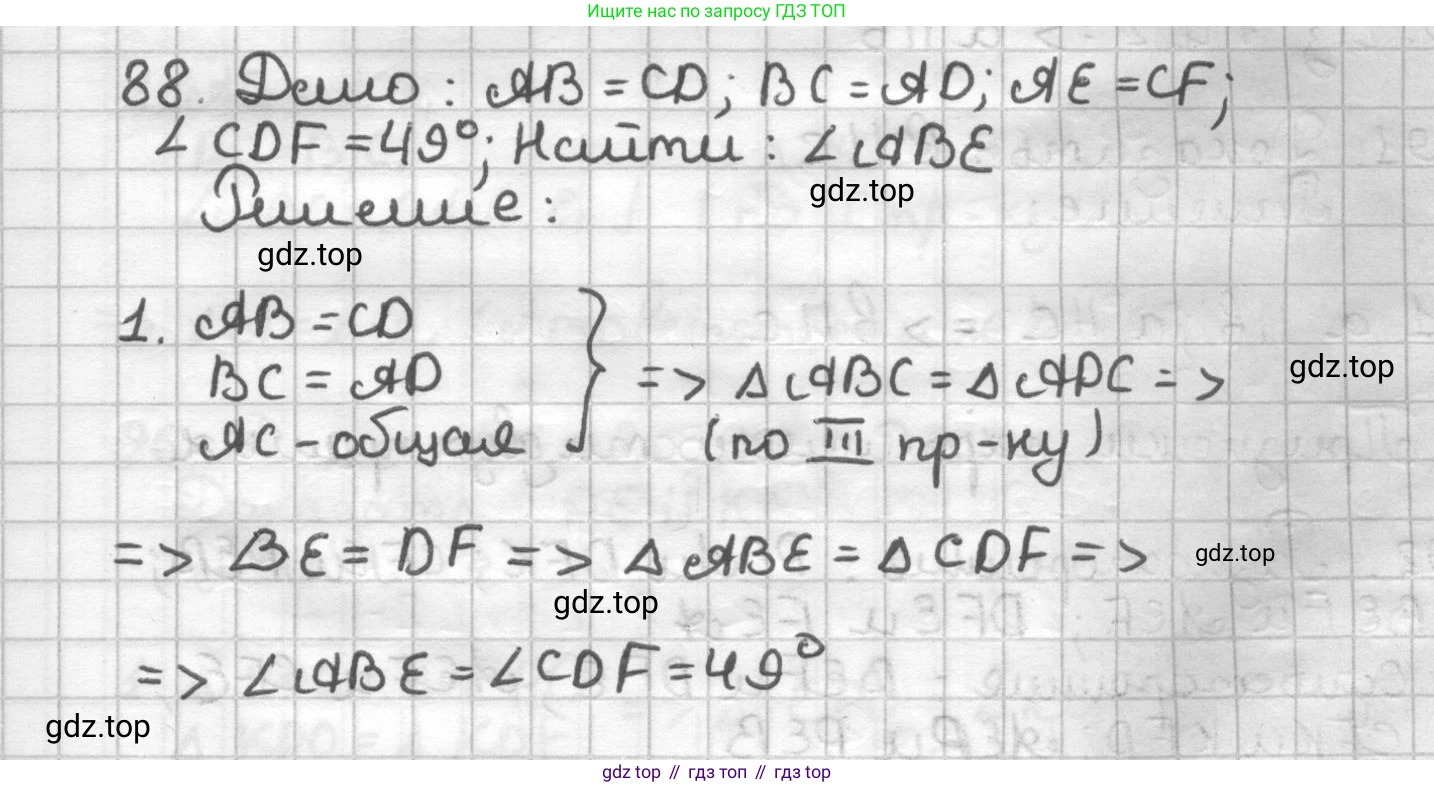 Ищите нас по запросу ГДЗ ТОП
88. Дано : AB = CD; BC = AD; AE = CF;
∠ CDF = 49°; Найти : ∠ ABE
gdz.top
Решение :
gdz.top
1. AB = CD
BC = AD => Δ ABC = Δ ADC =>
gdz.top
AC - общая } (по III пр-ку)
=> BE = DF => Δ ABE = Δ CDF =>
gdz.top
gdz.top
=> ∠ ABE = ∠ CDF = 49°
gdz.top
gdz top // гдз топ // gdz top